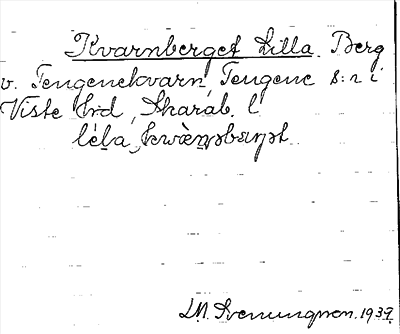 Kvarnberget Lilla. Berg
v. Tengenekvarn, Tengene s:n i
Viste hrd, Skarab. l
lɛ́la kwǽṇəbærjət
L.M. Svenungsson. 1939.